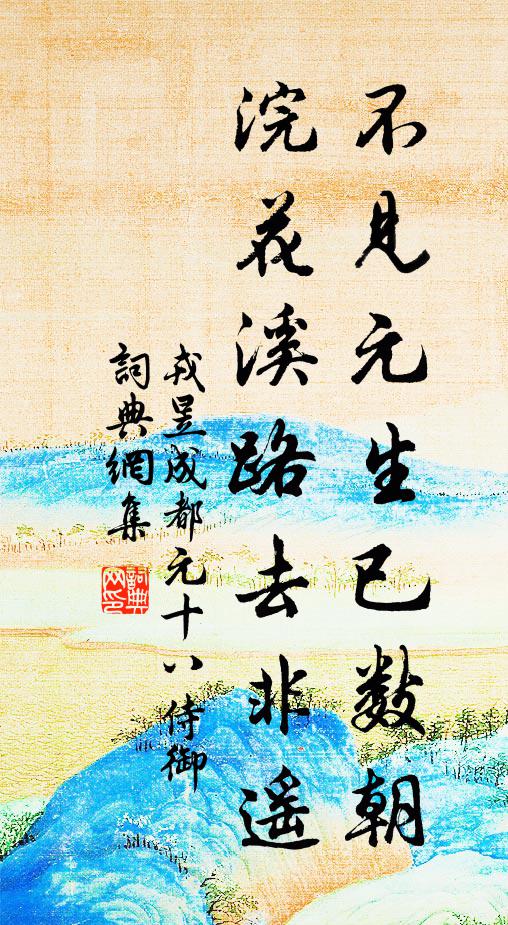 不见元生已数朝
浣花溪路去非遥
戎昱成都元十八侍御
詞典網集
詞典網印